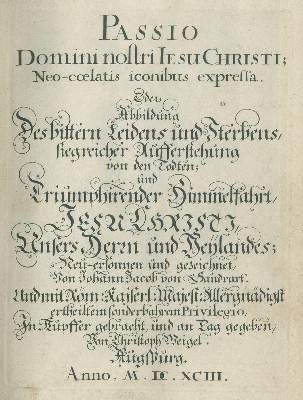 PASSIO
Domini nostri IESU CHRISTI;
Neo-cœlatis iconibus expressa.
Oder
Abbildung
Des bittern Leidens und Sterbens,
siegreicher Aufferstehung
von den Todten;
und
Triumphirender Himmelfahrt,
JESU CHRISTI,
Unsers Herrn und Heylandes;
Neu-ersonnen und gezeichnet,
Von Johann Jacob von Sandrart.
Und mit Röm: Kaiserl: Majest: Allergnädigst
ertheiltem sonderbahrem Privilegio,
In Kupffer gebracht und an Tag gegeben,
Von Christoph Weigel.
Augspurg.
Anno, M. DC. XCIII.